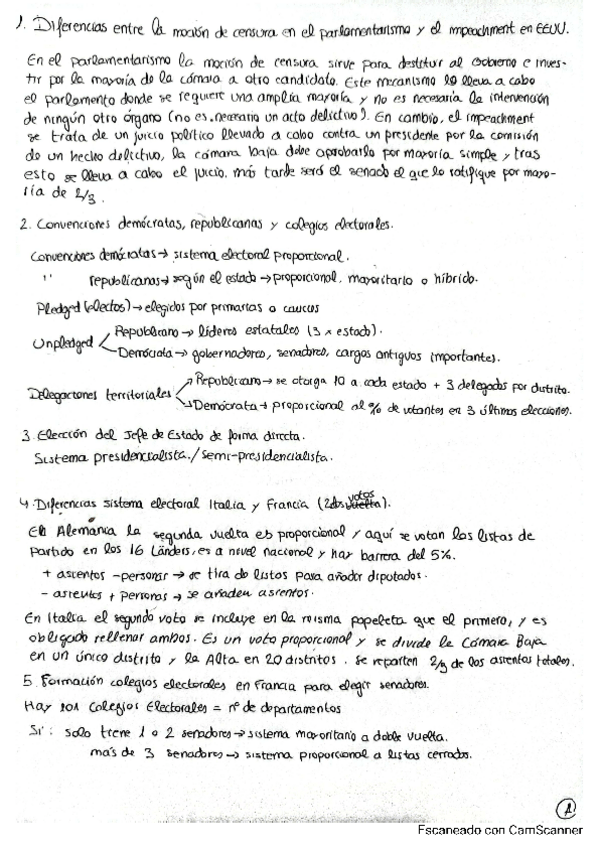 1. Diferencias entre la moción de censura en el parlamentarismo y el impeachment en EEUU.
En el parlamentarismo la moción de censura sirve para destituir al Gobierno e inves-
tir por la mayoría de la cámara a otro candidato. Este mecanismo lo lleva a cabo
el parlamento donde se requiere una amplia mayoría y no es necesaria la intervención
de ningún otro órgano (no es necesario un acto delictivo). En cambio, el impeachment
se trata de un juicio político llevado a cabo contra un presidente por la comisión
de un hecho delictivo, la cámara baja debe aprobarlo por mayoría simple y tras
esto se lleva a cabo el juicio, más tarde será el senado el que lo ratifique por mayo-
ría de 2/3.
2. Convenciones demócratas, republicanas y colegios electorales.
Convenciones demócratas → sistema electoral proporcional.
'' republicanas → según el estado → proporcional, mayoritario o híbrido.
Pledged (electos) → elegidos por primarias o caucus
Unpledged
Republicano → líderes estatales (3 x estado).
Demócrata → gobernadores, senadores, cargos antiguos importantes).
Delegaciones territoriales
Republicano → se otorga 10 a cada estado + 3 delegados por distrito.
Demócrata → proporcional al % de votantes en 3 últimas elecciones.
3. Elección del Jefe de Estado de forma directa.
Sistema presidencialista. / Semi-presidencialista.
4. Diferencias sistema electoral Italia y Francia (2dos votos).
En Alemania la segunda vuelta es proporcional y aquí se votan las listas de
Partido en los 16 Länders, es a nivel nacional y hay barrera del 5%.
+ asientos - personas → se tira de listas para añadir diputados.
- asientos + personas → se añaden asientos.
En Italia el segundo voto se incluye en la misma papeleta que el primero, y es
obligado rellenar ambos. Es un voto proporcional y se divide la Cámara Baja
en un único distrito y la Alta en 20 distritos. Se reparten 2/3 de los asientos totales.
5. Formación colegios electorales en Francia para elegir senadores.
Hay 101 Colegios Electorales = nº de departamentos
Si: solo tiene 1 o 2 senadores → sistema mayoritario a doble vuelta.
más de 3 senadores → sistema proporcional a listas cerradas.
1
Escaneado con CamScanner